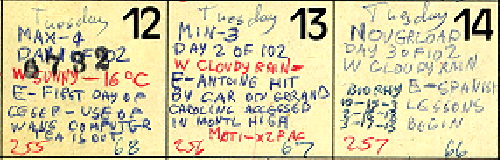 Tuesday 12
MAX-4
DAY 1 OF 102
0732
W SUNNY - 16°C
E - FIRST DAY OF
CEGEP - USE OF
WANG COMPUTER
EA IS OUT
255 68
Tuesday 13
MIN-3
DAY 2 OF 102
W CLOUDY RAIN
E - ANTOINE HIT
BY CAR ON GRAND
CAROLINE ACCESSED
IN MONTL HIGH
METI - X2 RAE
256 67
Tuesday 14
DAY 3 OF 102
W CLOUDY RAIN
BIORHY E - SPANISH
LESSONS
BEGIN
257 66